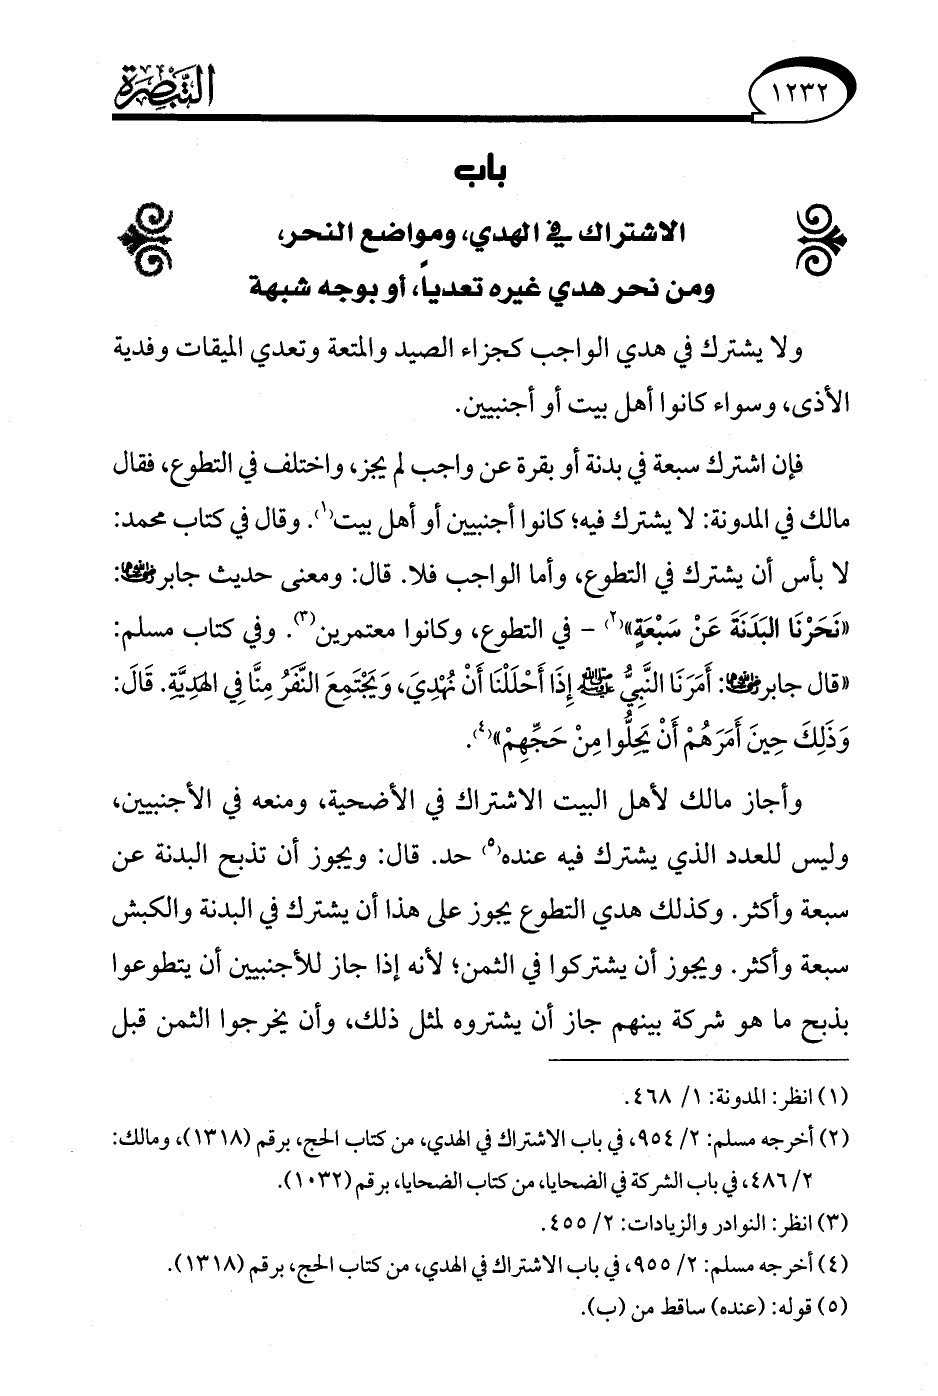 ١٢٣٢
التبصرة
باب
الاشتراك في الهدي، ومواضع النحر،
ومن نحر هدي غيره تعدياً، أو بوجه شبهة
ولا يشترك في هدي الواجب كجزاء الصيد والمتعة وتعدي الميقات وفدية
الأذى، وسواء كانوا أهل بيت أو أجنبيين.
فإن اشترك سبعة في بدنة أو بقرة عن واجب لم يجز، واختلف في التطوع، فقال
مالك في المدونة: لا يشترك فيه؛ كانوا أجنبيين أو أهل بيت(١). وقال في كتاب محمد:
لا بأس أن يشترك في التطوع، وأما الواجب فلا. قال: ومعنى حديث جابر رضي الله عنه:
«نَحَرْنَا البَدَنَةَ عَنْ سَبْعَةٍ»(٢) - في التطوع، وكانوا معتمرين(٣). وفي كتاب مسلم:
«قال جابر رضي الله عنه: أَمَرَنَا النَّبِيُّ ﷺ إِذَا أَحْلَلْنَا أَنْ نُهْدِيَ، وَيَجْتَمِعَ النَّفَرُ مِنَّا فِي الهَدِيَّةِ. قَالَ:
وَذَلِكَ حِينَ أَمَرَهُمْ أَنْ يَحِلُّوا مِنْ حَجِّهِمْ»(٤).
وأجاز مالك لأهل البيت الاشتراك في الأضحية، ومنعه في الأجنبيين،
وليس للعدد الذي يشترك فيه عنده(٥) حد. قال: ويجوز أن تذبح البدنة عن
سبعة وأكثر. وكذلك هدي التطوع يجوز على هذا أن يشترك في البدنة والكبش
سبعة وأكثر. ويجوز أن يشتركوا في الثمن؛ لأنه إذا جاز للأجنبيين أن يتطوعوا
بذبح ما هو شركة بينهم جاز أن يشتروه لمثل ذلك، وأن يخرجوا الثمن قبل
(١) انظر: المدونة: ١/ ٤٦٨.
(٢) أخرجه مسلم: ٢/ ٩٥٤، في باب الاشتراك في الهدي، من كتاب الحج، برقم (١٣١٨)، ومالك:
٢/ ٤٨٦، في باب الشركة في الضحايا، من كتاب الضحايا، برقم (١٠٣٢).
(٣) انظر: النوادر والزيادات: ٢/ ٤٥٥.
(٤) أخرجه مسلم: ٢/ ٩٥٥، في باب الاشتراك في الهدي، من كتاب الحج، برقم (١٣١٨).
(٥) قوله: (عنده) ساقط من (ب).